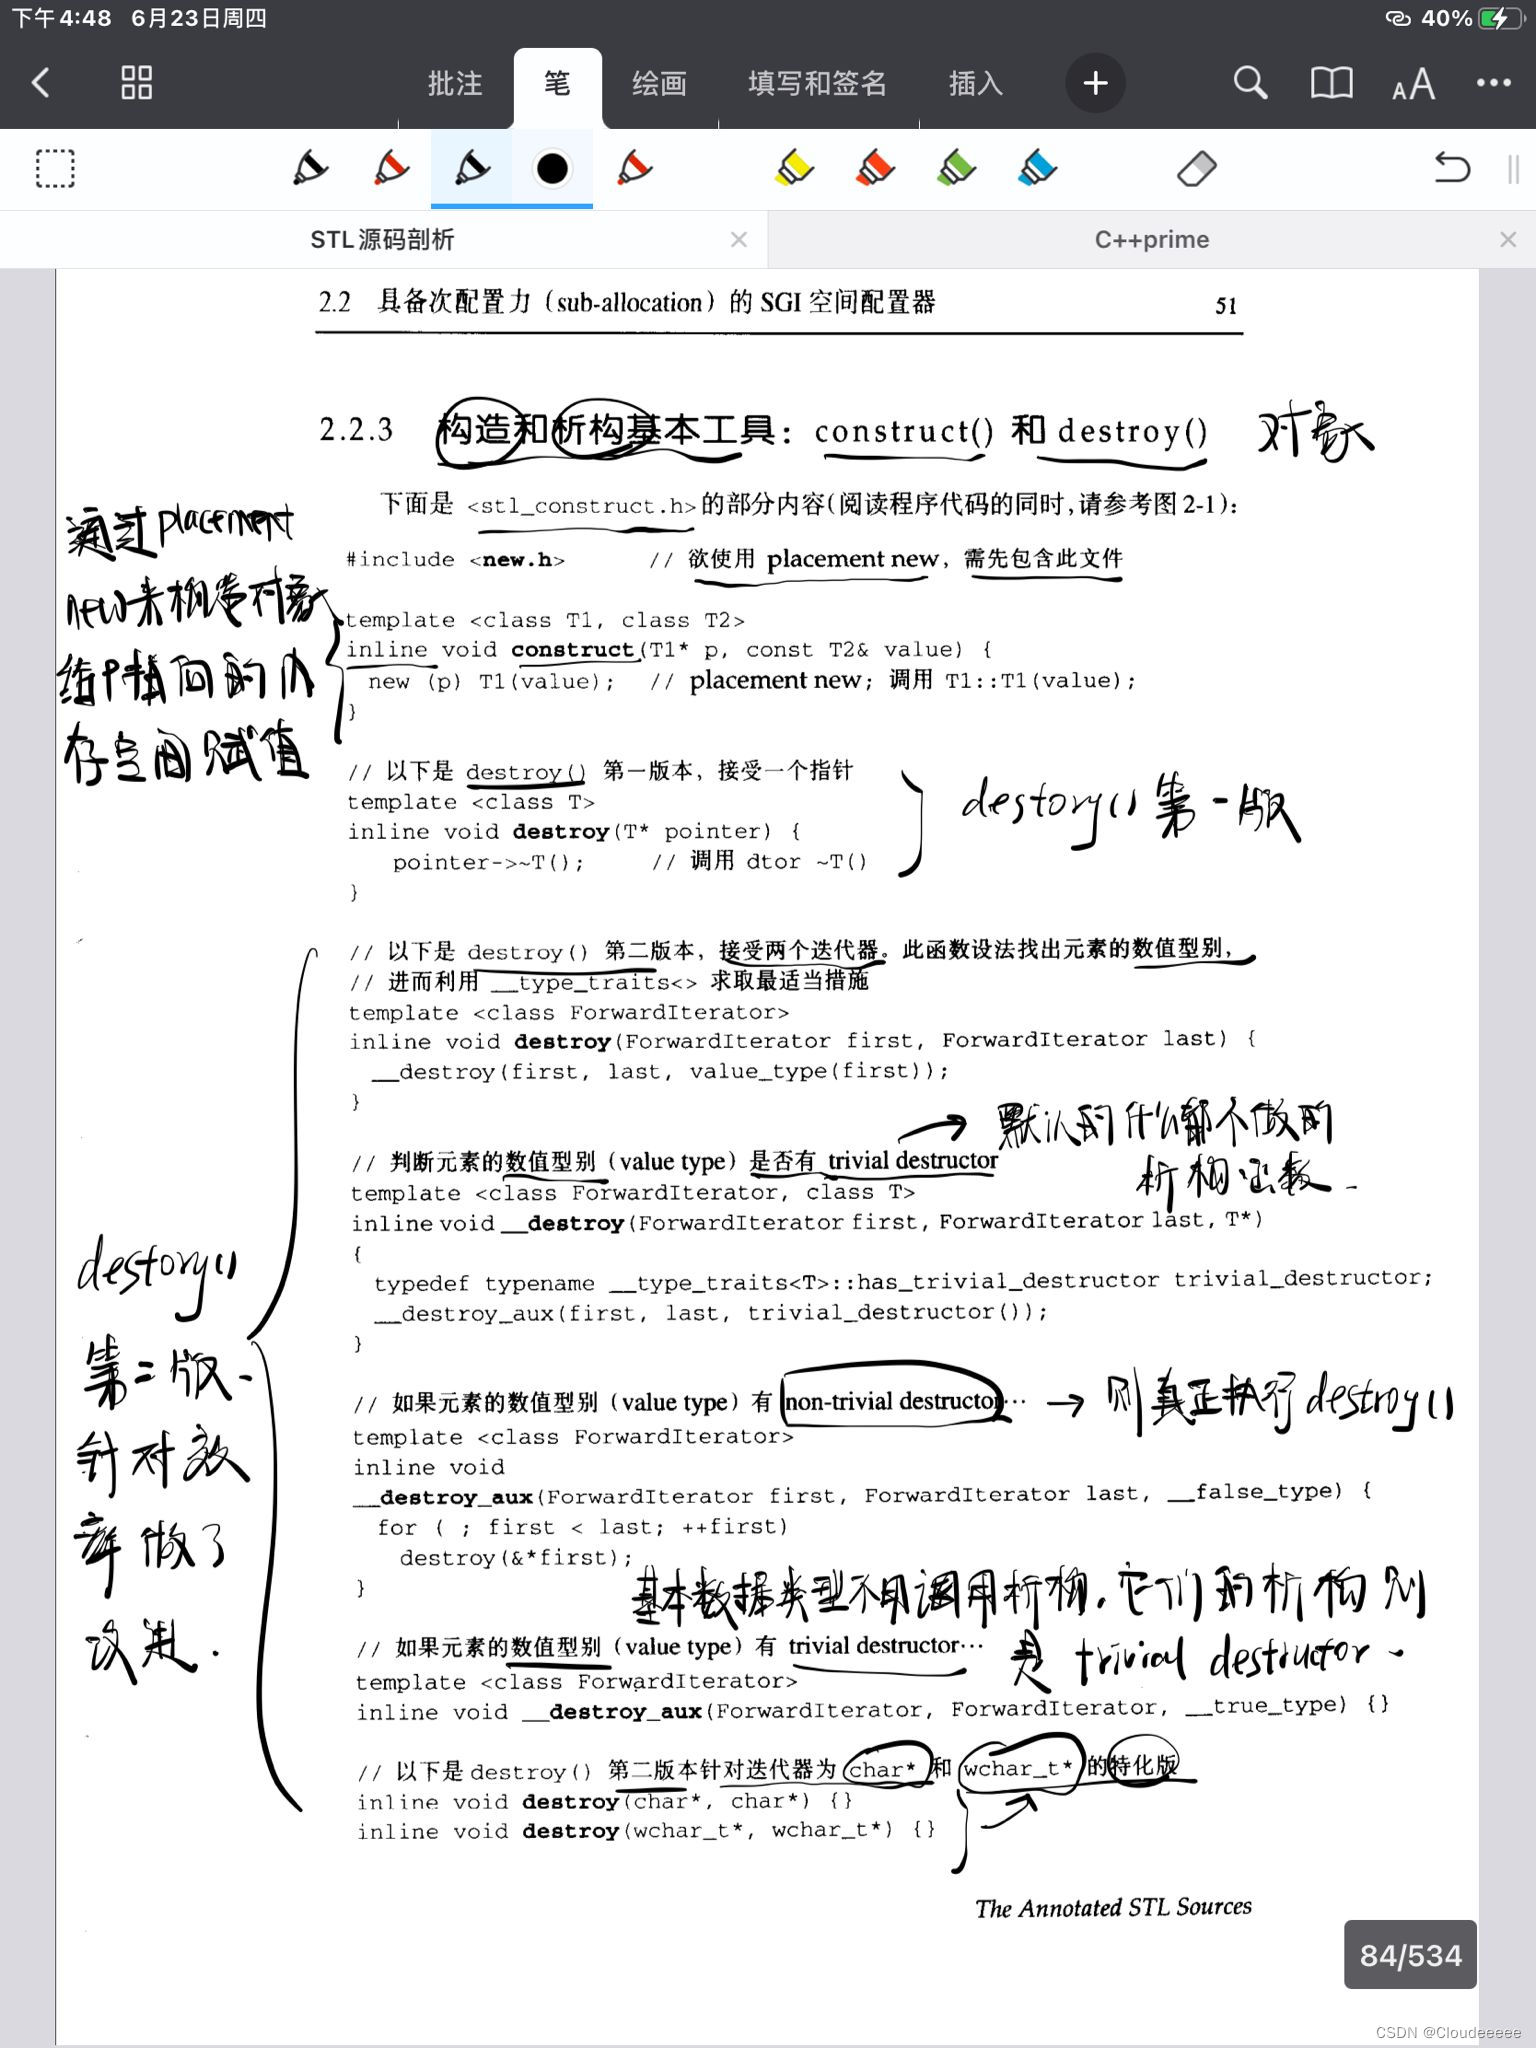 下午4:48 6月23日周四
40%
批注 笔 绘画 填写和签名 插入
AA
STL源码剖析
C++prime
2.2 具备次配置力(sub-allocation)的 SGI 空间配置器 51
2.2.3 构造和析构基本工具:construct() 和 destroy()
对象
下面是 <stl_construct.h>的部分内容(阅读程序代码的同时,请参考图 2-1):
通过placement
new来构造对象
给P指向的内
存空间赋值
#include <new.h> // 欲使用 placement new,需先包含此文件
template <class T1, class T2>
inline void construct(T1* p, const T2& value) {
new (p) T1(value); // placement new; 调用 T1::T1(value);
}
// 以下是 destroy() 第一版本,接受一个指针
template <class T>
inline void destroy(T* pointer) {
pointer->~T(); // 调用 dtor ~T()
}
destory()第一版
// 以下是 destroy() 第二版本,接受两个迭代器。此函数设法找出元素的数值型别,
// 进而利用 __type_traits<> 求取最适当措施
template <class ForwardIterator>
inline void destroy(ForwardIterator first, ForwardIterator last) {
__destroy(first, last, value_type(first));
}
默认的什么都不做的
析构函数.
// 判断元素的数值型别(value type)是否有 trivial destructor
template <class ForwardIterator, class T>
inline void __destroy(ForwardIterator first, ForwardIterator last, T*)
{
typedef typename __type_traits<T>::has_trivial_destructor trivial_destructor;
__destroy_aux(first, last, trivial_destructor());
}
destory()
第二版.
针对效
率做了
改进.
// 如果元素的数值型别(value type)有 non-trivial destructor…
→ 则真正执行destroy()
template <class ForwardIterator>
inline void
__destroy_aux(ForwardIterator first, ForwardIterator last, __false_type) {
for ( ; first < last; ++first)
destroy(&*first);
}
基本数据类型不用调用析构.它们的析构则
是 trivial destructor.
// 如果元素的数值型别(value type)有 trivial destructor…
template <class ForwardIterator>
inline void __destroy_aux(ForwardIterator, ForwardIterator, __true_type) {}
// 以下是destroy() 第二版本针对迭代器为 char* 和 wchar_t* 的特化版
inline void destroy(char*, char*) {}
inline void destroy(wchar_t*, wchar_t*) {}
The Annotated STL Sources
84/534
CSDN @Cloudeeeee